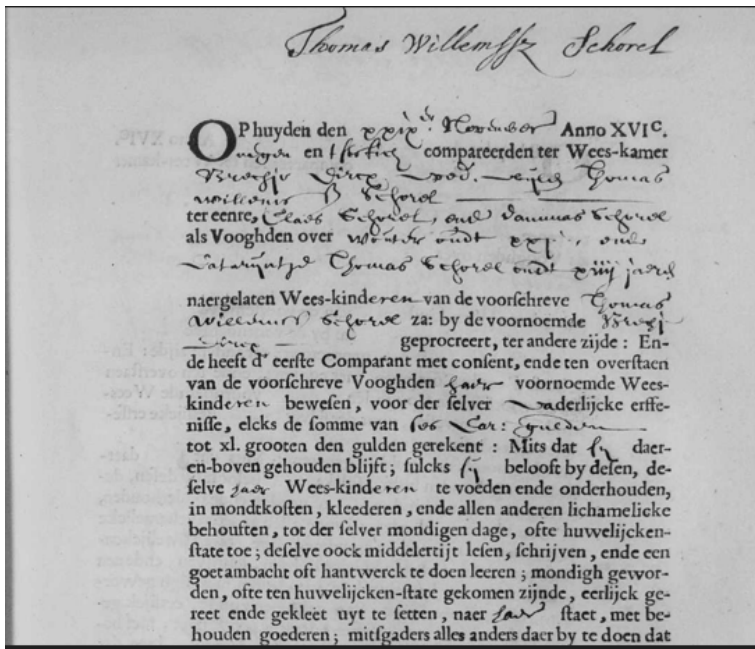 Thomas Willemssz Schorel
OP huyden den xxixen November Anno XVIC.
negen en tsestich compareerden ter Wees-kamer
Dircx wed. Thomas
Willems Schorel
ter eenre, Claes Schorel, ende Dammas Schorel
als Vooghden over Wouter oudt xxj, ende
Catarijntje Thomas Schorel oudt xiiij jaeren
naergelaten Wees-kinderen van de voorschreve Thomas
Willemss Schorel za: by de voornoemde
Dircx geprocreert, ter andere zijde: En-
de heeft d' eerste Comparant met consent, ende ten overstaen
van de voorschreve Vooghden haer voornoemde Wees-
kinderen bewesen, voor der selver vaderlijcke erffe-
nisse, elcks de somme van ses Car: gulden
tot xl. grooten den gulden gerekent: Mits dat sy daer-
en-boven gehouden blijft; sulcks sy belooft by desen, de-
selve haer Wees-kinderen te voeden ende onderhouden,
in mondtkosten, kleederen, ende allen anderen lichamelicke
behouften, tot der selver mondigen dage, ofte huwelijcken-
state toe; deselve oock middelertijt lesen, schrijven, ende een
goet ambacht oft hantwerck te doen leeren; mondigh gewor-
den, ofte ten huwelijcken-state gekomen zijnde, eerlijck ge-
reet ende gekleet uyt te setten, naer haer staet, met be-
houden goederen; mitsgaders alles anders daer by te doen dat